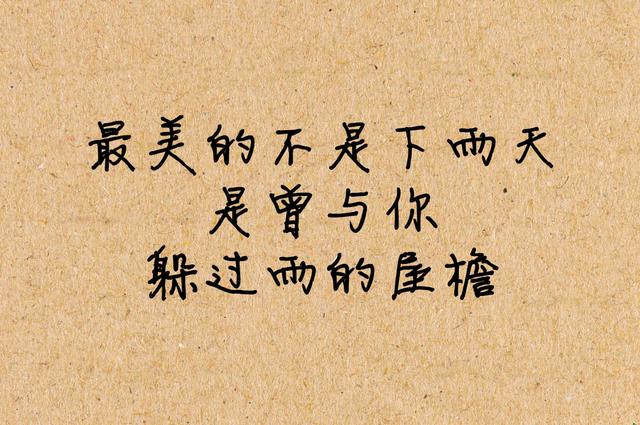 最美的不是下雨天
是曾与你
躲过雨的屋檐